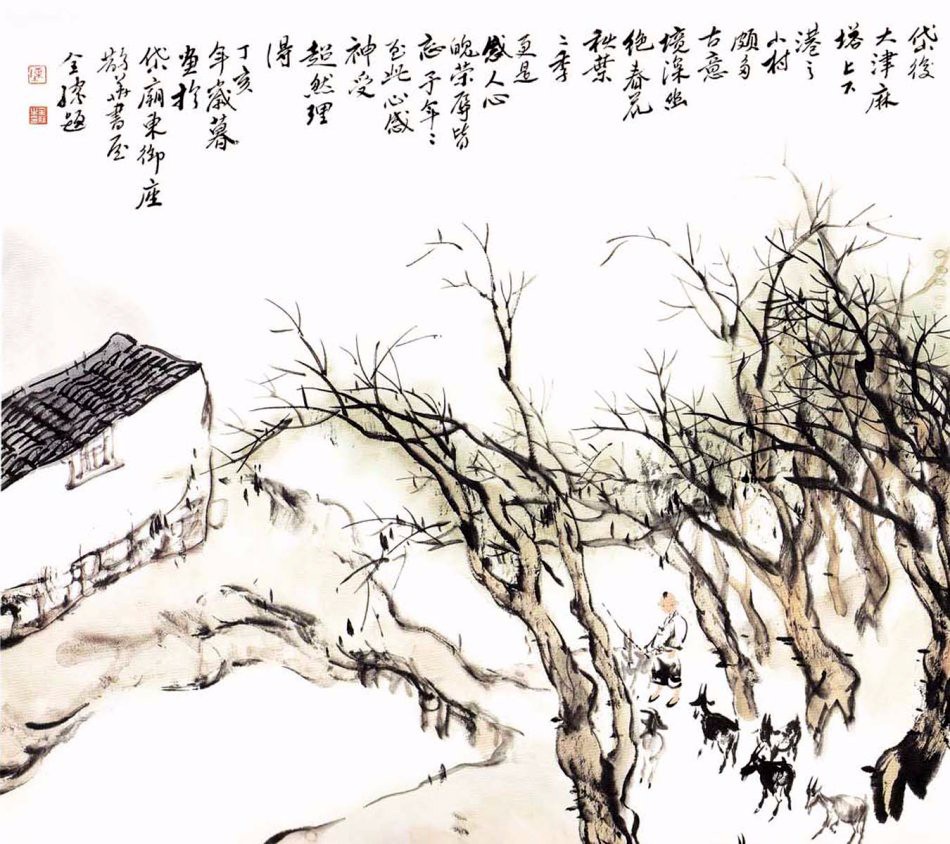 岱後
大津麻
塔上下
港之
小村
頗多
古意
境深幽
绝春花
秋葉
二季
更是
感人心
魄荣辱皆
忘予年〻
至此心感
神受
超然理
得
丁亥
年歲暮
畫於
岱廟東御座
華書屋
全題